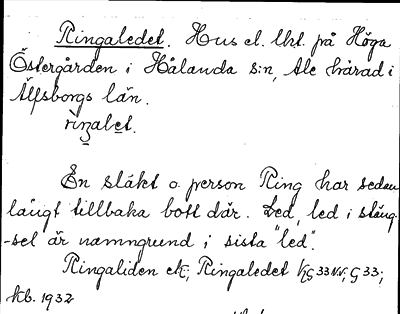 Ringaledet. Hus el. lht. på Höga
Östergården i Hålanda s:n, Ale härad i
Älfsborgs län.
riŋalet.
En släkt o. person Ring har sedan
långt tillbaka bott där. Led, led i stäng-
-sel är namngrund i sista "led".
Ringaliden ek; Ringaledet G 33;

kb. 1932